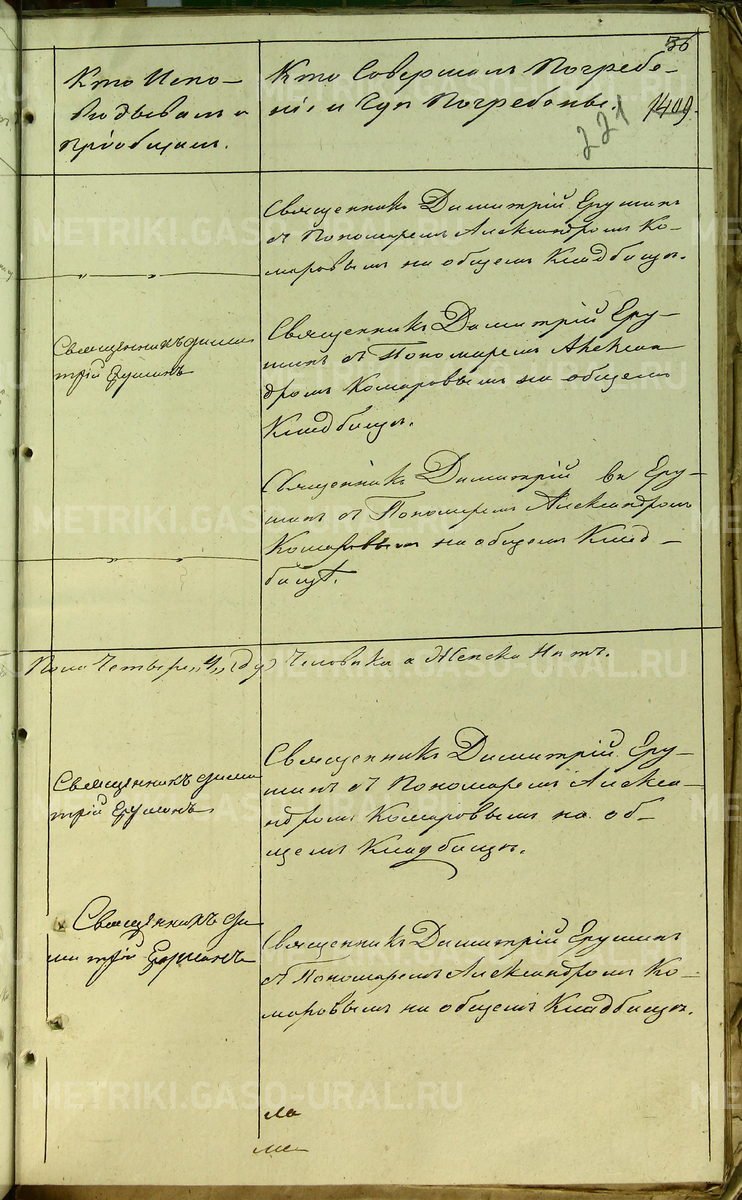 56
Кто Испо-
ведывалъ и
Пріобщалъ.
Кто Совершалъ Погребе-
ніе и Гдѣ Погребены.
221
1409.
Священникъ Димитрій Ерушинъ
съ Пономаремъ Александромъ Ко-
маровымъ на общемъ Кладбищѣ.
Священникъ Дими
трій Ерушинъ
Священникъ Димитрій Еру-
шинъ съ Пономаремъ Алекса
дромъ Комаровымъ на общемъ
Кладбищѣ.
Священникъ Димитрій Еру-
шинъ съ Пономаремъ Александромъ
Комаровымъ на общемъ Клад-
бищѣ.
Пола Четыре Человѣка а Женска Нѣтъ.
Священникъ Дими
трій Ерушинъ
Священникъ Димитрій Еру-
шинъ съ Пономаремъ Алекса-
ндромъ Комаровымъ на об-
щемъ Кладбищѣ.
Священникъ Ди
митрій Ерушинъ
Священникъ Димитрій Ерушинъ
съ Пономаремъ Александромъ Ко-
маровымъ на общемъ Кладбищѣ.
METRIKI.GASO-URAL.RU
METRIKI.GASO-URAL.RU
METRIKI.GASO-URAL.RU
METRIKI.GASO-URAL.RU
METRIKI.GASO-URAL.RU
METRIKI.GASO-URAL.RU
METRIKI.GASO-URAL.RU